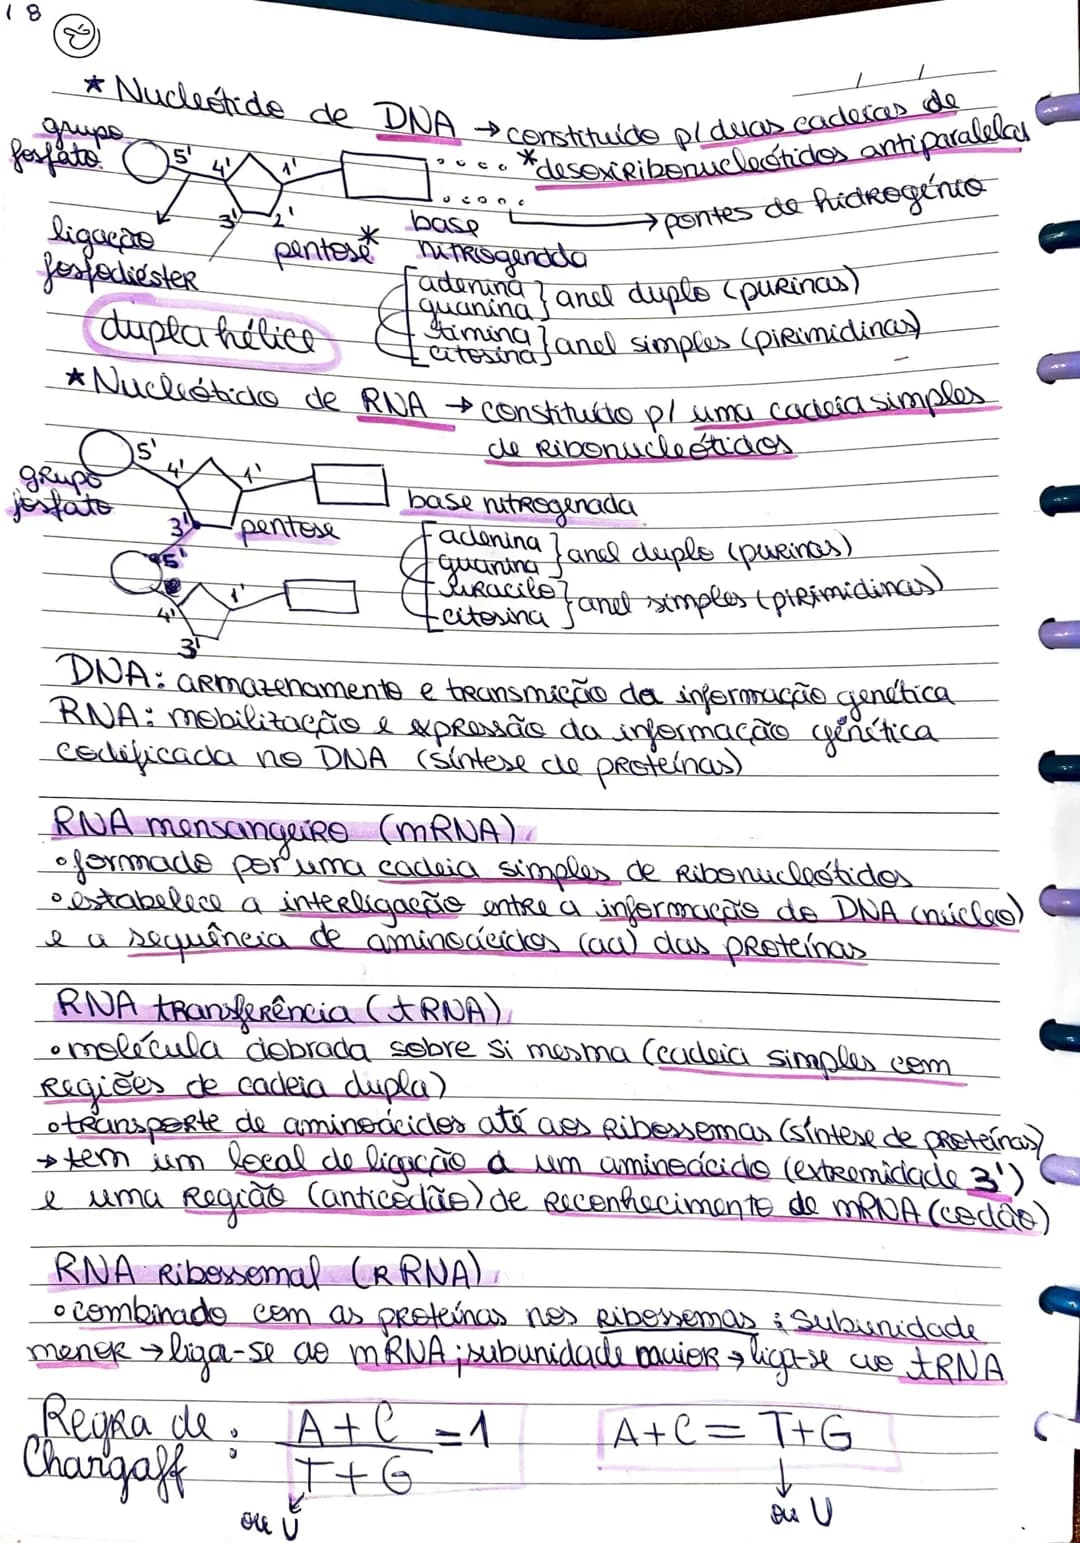 18
* Nucleótido de DNA → constituído p/ duas cadeias de
* desoxiribonucleótidos antiparalelas
grupo
fosfato
5' 4' 1'
3' 2'
→ pontes de hidrogénio
ligação
fosfodiéster
pentose *
base
nitrogenada
adenina
guanina } anel duplo (purinas)
timina
citosina } anel simples (pirimidinas)
dupla hélice
* Nucleótido de RNA → constituído p/ uma cadeia simples
de Ribonucleótidos
grupo
fosfato
5' 4' 1'
3' pentose
5'
1'
4'
3'
base nitrogenada
adenina
guanina } anel duplo (purinas)
uracilo
citosina } anel simples (pirimidinas)
DNA: armazenamento e transmição da informação genética
RNA: mobilização e expressão da informação genética
codificada no DNA (síntese de proteínas)
RNA mensangeiro (mRNA)
• formado por uma cadeia simples de Ribonucleótidos
• estabelece a interligação entre a informação do DNA (núcleo)
e a sequência de aminoácidos (aa) das proteínas
RNA transferência (tRNA)
• molécula dobrada sobre si mesma (cadeia simples com
Regiões de cadeia dupla)
• transporte de aminoácidos até aos Ribossomas (síntese de proteínas)
→ tem um local de ligação a um aminoácido (extremidade 3')
e uma Região (anticodão) de reconhecimento de mRNA (codão)
RNA Ribossomal (RRNA)
• combinado com as proteínas nos Ribossomas ; Subunidade
menor → liga-se ao mRNA ; subunidade maior → liga-se ao tRNA
Regra de
Chargaff :
A + C / T + G = 1
A + C = T + G
ou U
ou U